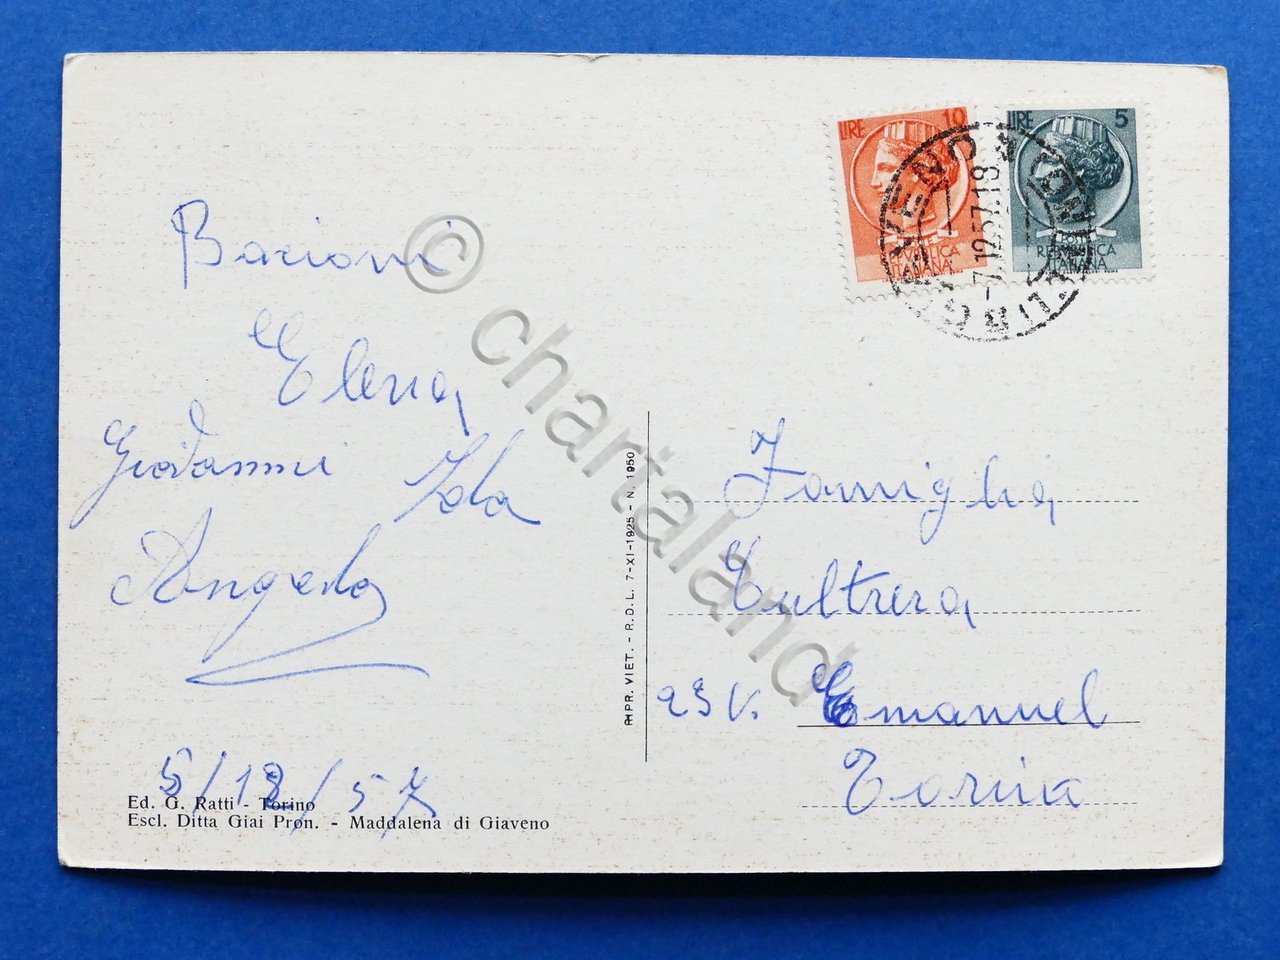 Bacioni
Elena
Giovanni Ida
Angela
5/12/57
Ed. G. Ratti - Torino
Escl. Ditta Giai Pron. - Maddalena di Giaveno
RIPR. VIET. - R.D.L. 7-XI-1925 - N. 1950
LIRE 10
REPUBBLICA
ITALIANA
LIRE 5
POSTE
REPUBBLICA
ITALIANA
-7.12.57.18
Famiglia
Cultrera
23 V. Emanuel
Torino
© chartaland